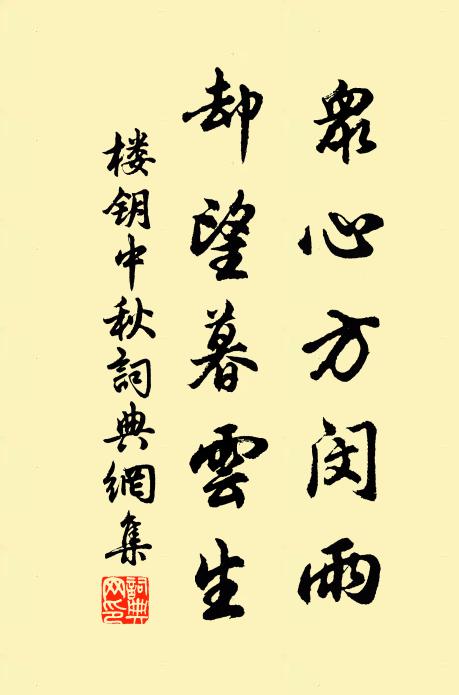 眾心方閔雨
却望暮雲生
楼钥中秋詞典網集
詞典網印